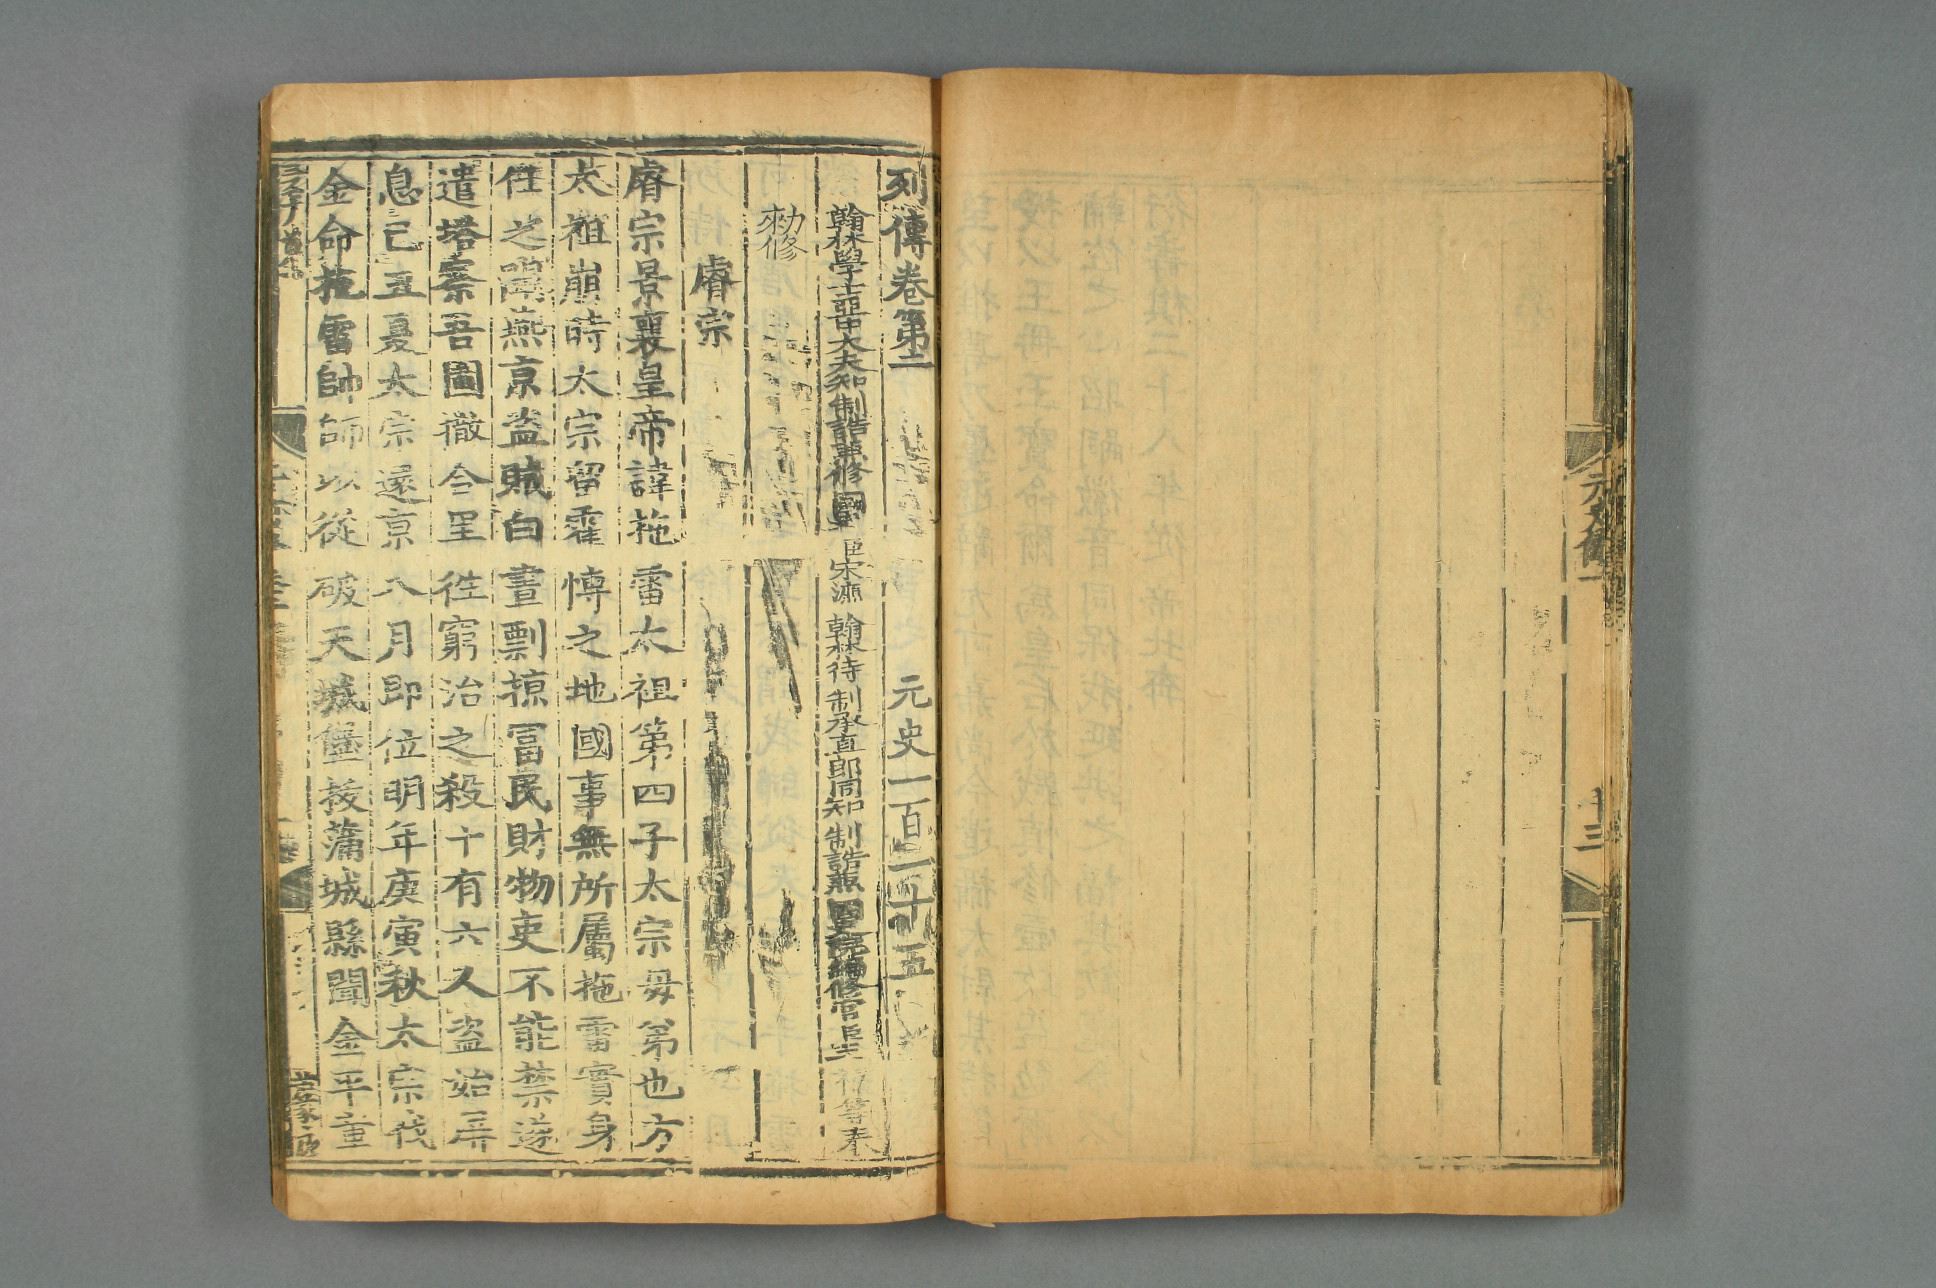 元史傳一
十三
列傳卷第二 元史一百一十五
翰林學士亞中大夫知制誥兼修國史臣宋濂 翰林待制承直郎同知制誥兼國史院編修官臣王禕等奉
勑修
睿宗
睿宗景襄皇帝諱拖雷太祖第四子太宗母弟也方
太祖崩時太宗留霍博之地國事無所屬拖雷實身
任之聞燕京盗賊白晝剽掠冨民財物吏不能禁遂
遣塔察吾圖撒合里往窮治之殺十有六人盗始屏
息己丑夏太宗還京八月即位明年庚寅秋太宗伐
金命拖雷帥師以從破天城堡拔蒲城縣聞金平章